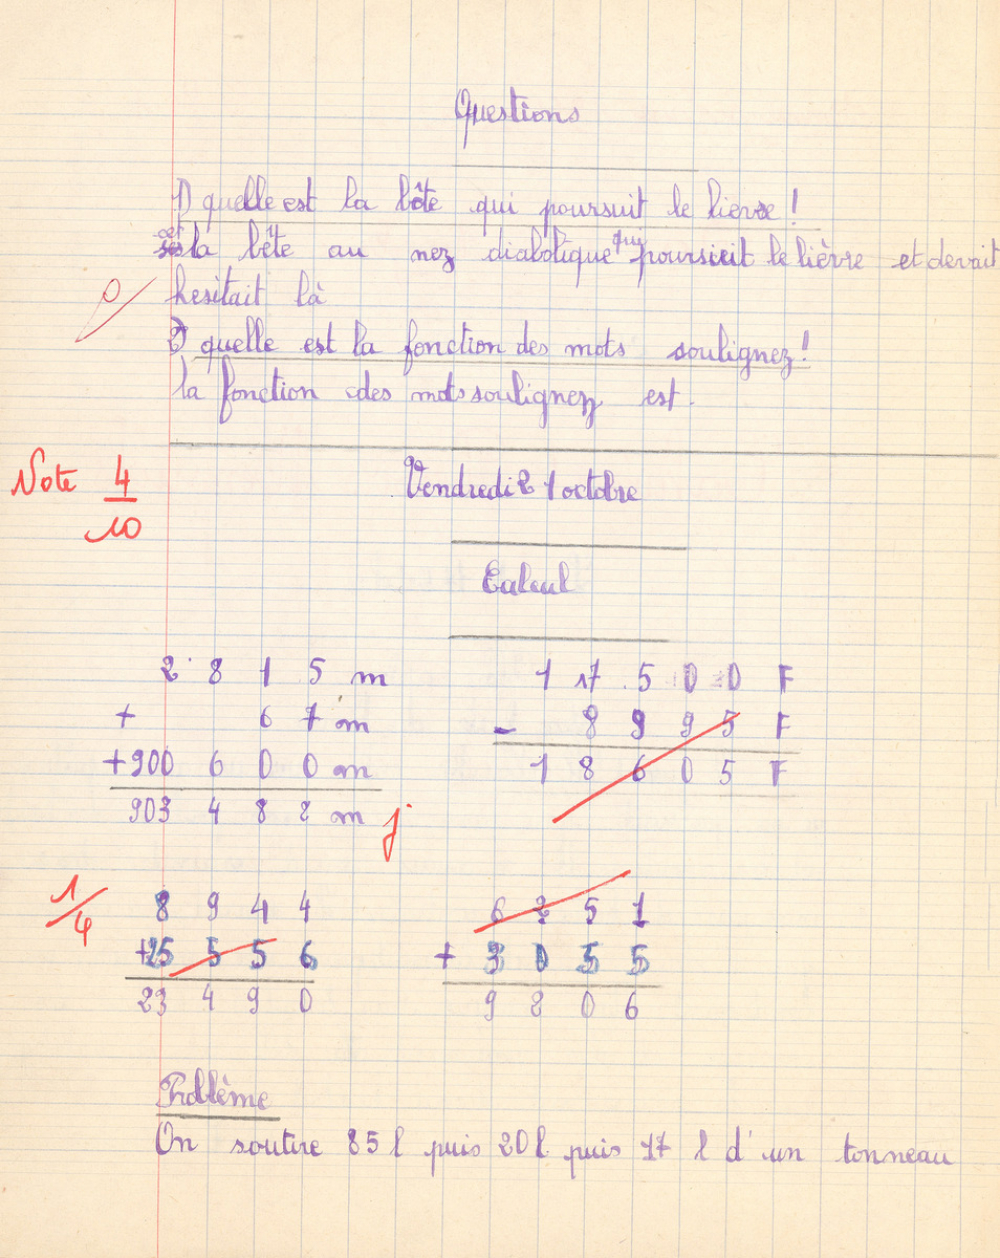 Questions
1) quelle est la bête qui poursuit le lievre!
la bête au nez diabolique qui poursuit le lièvre et devait
0 hesitait là
2) quelle est la fonction des mots soulignez!
la fonction des mots soulignez est.
Note 4/10
Vendredi 21 octobre
Calcul
2 8 1 5 m
+ 6 7 m
+900 6 0 0 m
903 4 8 2 m j
1 17 5 0 0 F
- 8 9 9 5 F
1 8 6 0 5 F
1/4
8 9 4 4
+25 5 5 6
23 4 9 0
6 2 5 1
+ 3 0 5 5
9 2 0 6
Problème
On soutire 85 l puis 20 l puis 17 l d'un tonneau